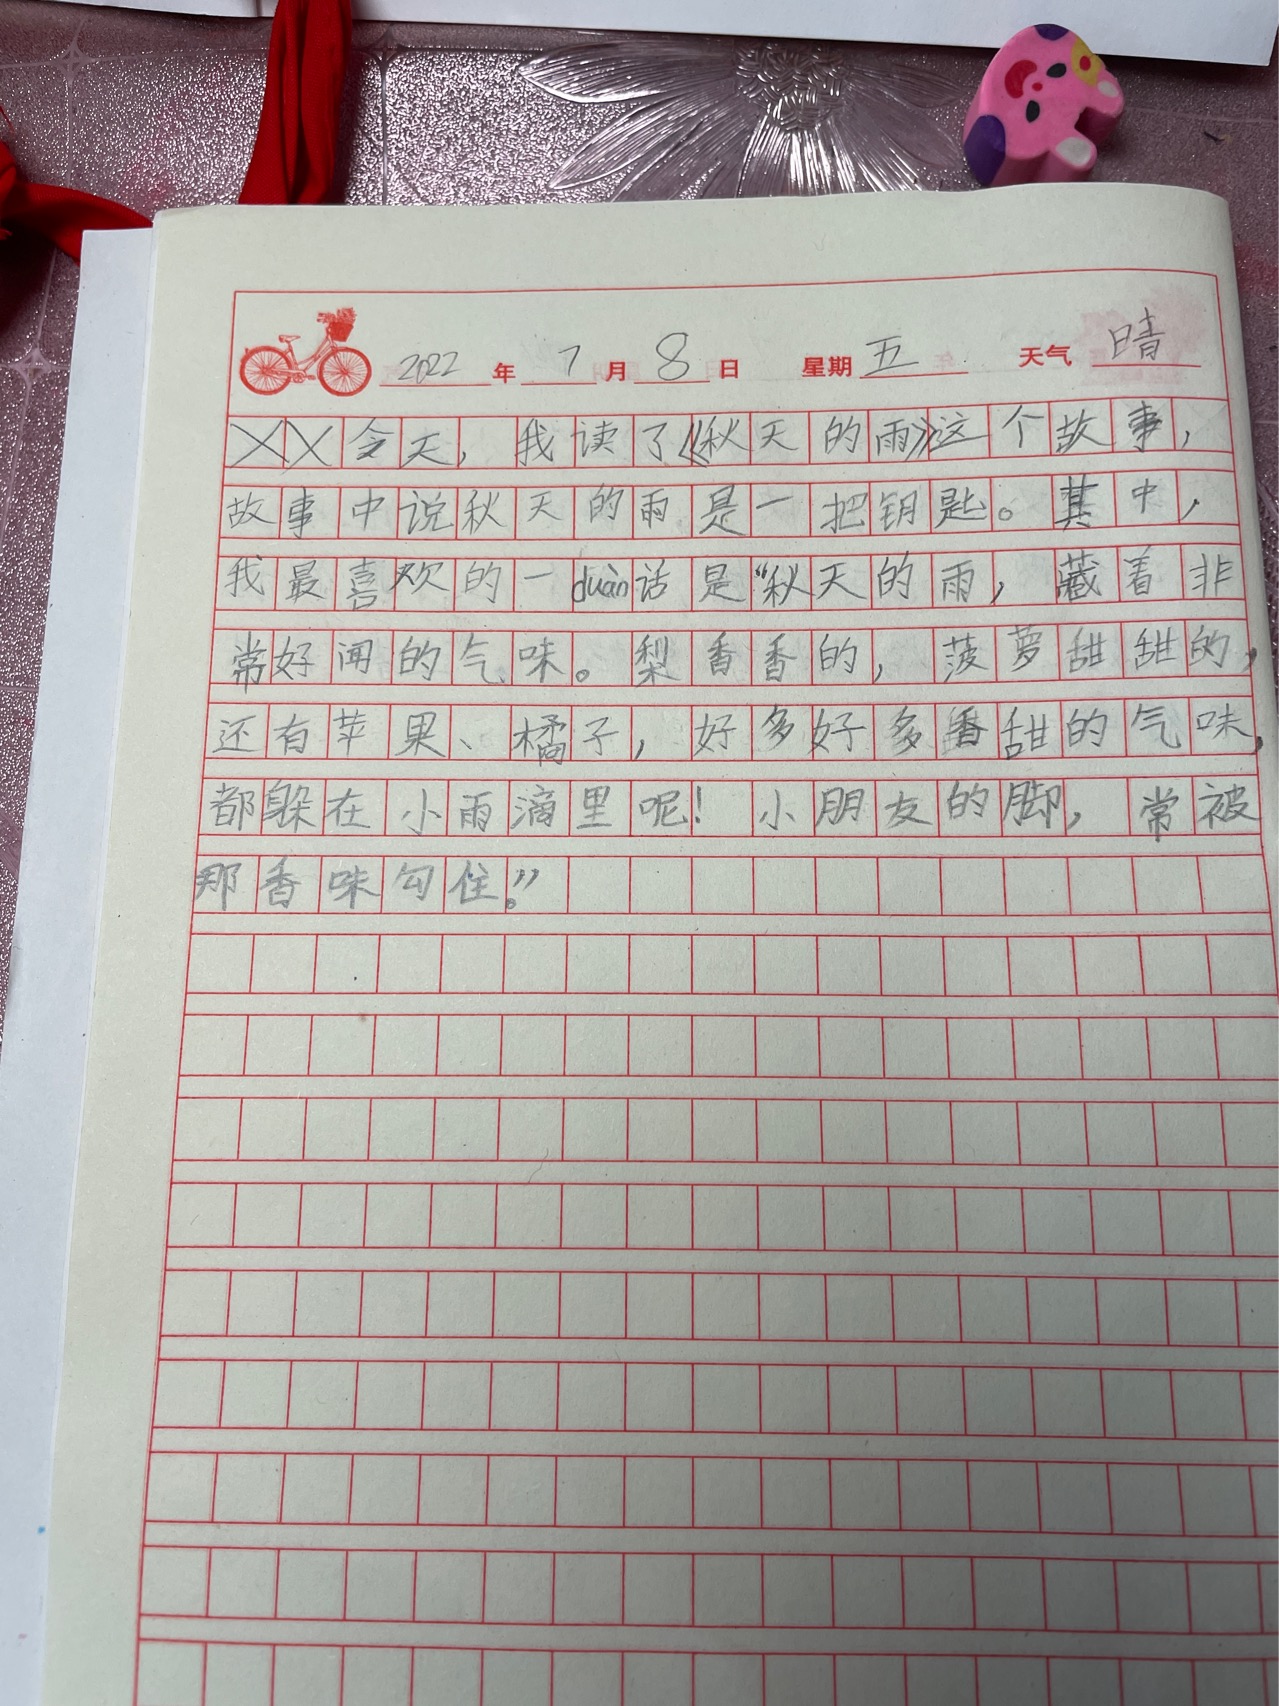 2022年7月8日 星期五 天气晴
XX今天，我读了《秋天的雨》这个故事，
故事中说秋天的雨是一把钥匙。其中，
我最喜欢的一duàn话是“秋天的雨，藏着非
常好闻的气味。梨香香的，菠萝甜甜的，
还有苹果、橘子，好多好多香甜的气味，
都躲在小雨滴里呢！小朋友的脚，常被
那香味勾住。”